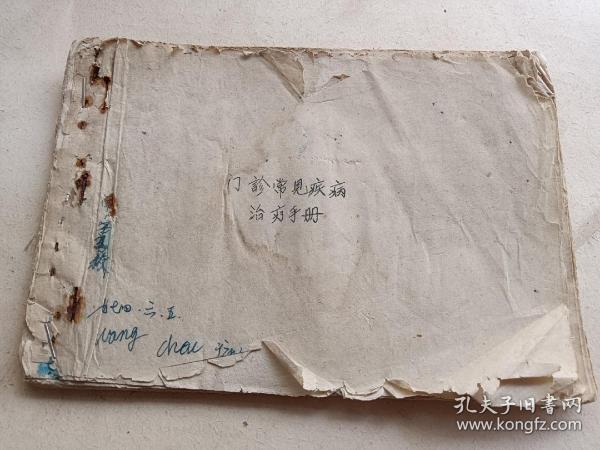 门診常見疾病
治疗手册
七四.六.五
Wang
Chao
孔夫子旧書网
www.kongfz.com